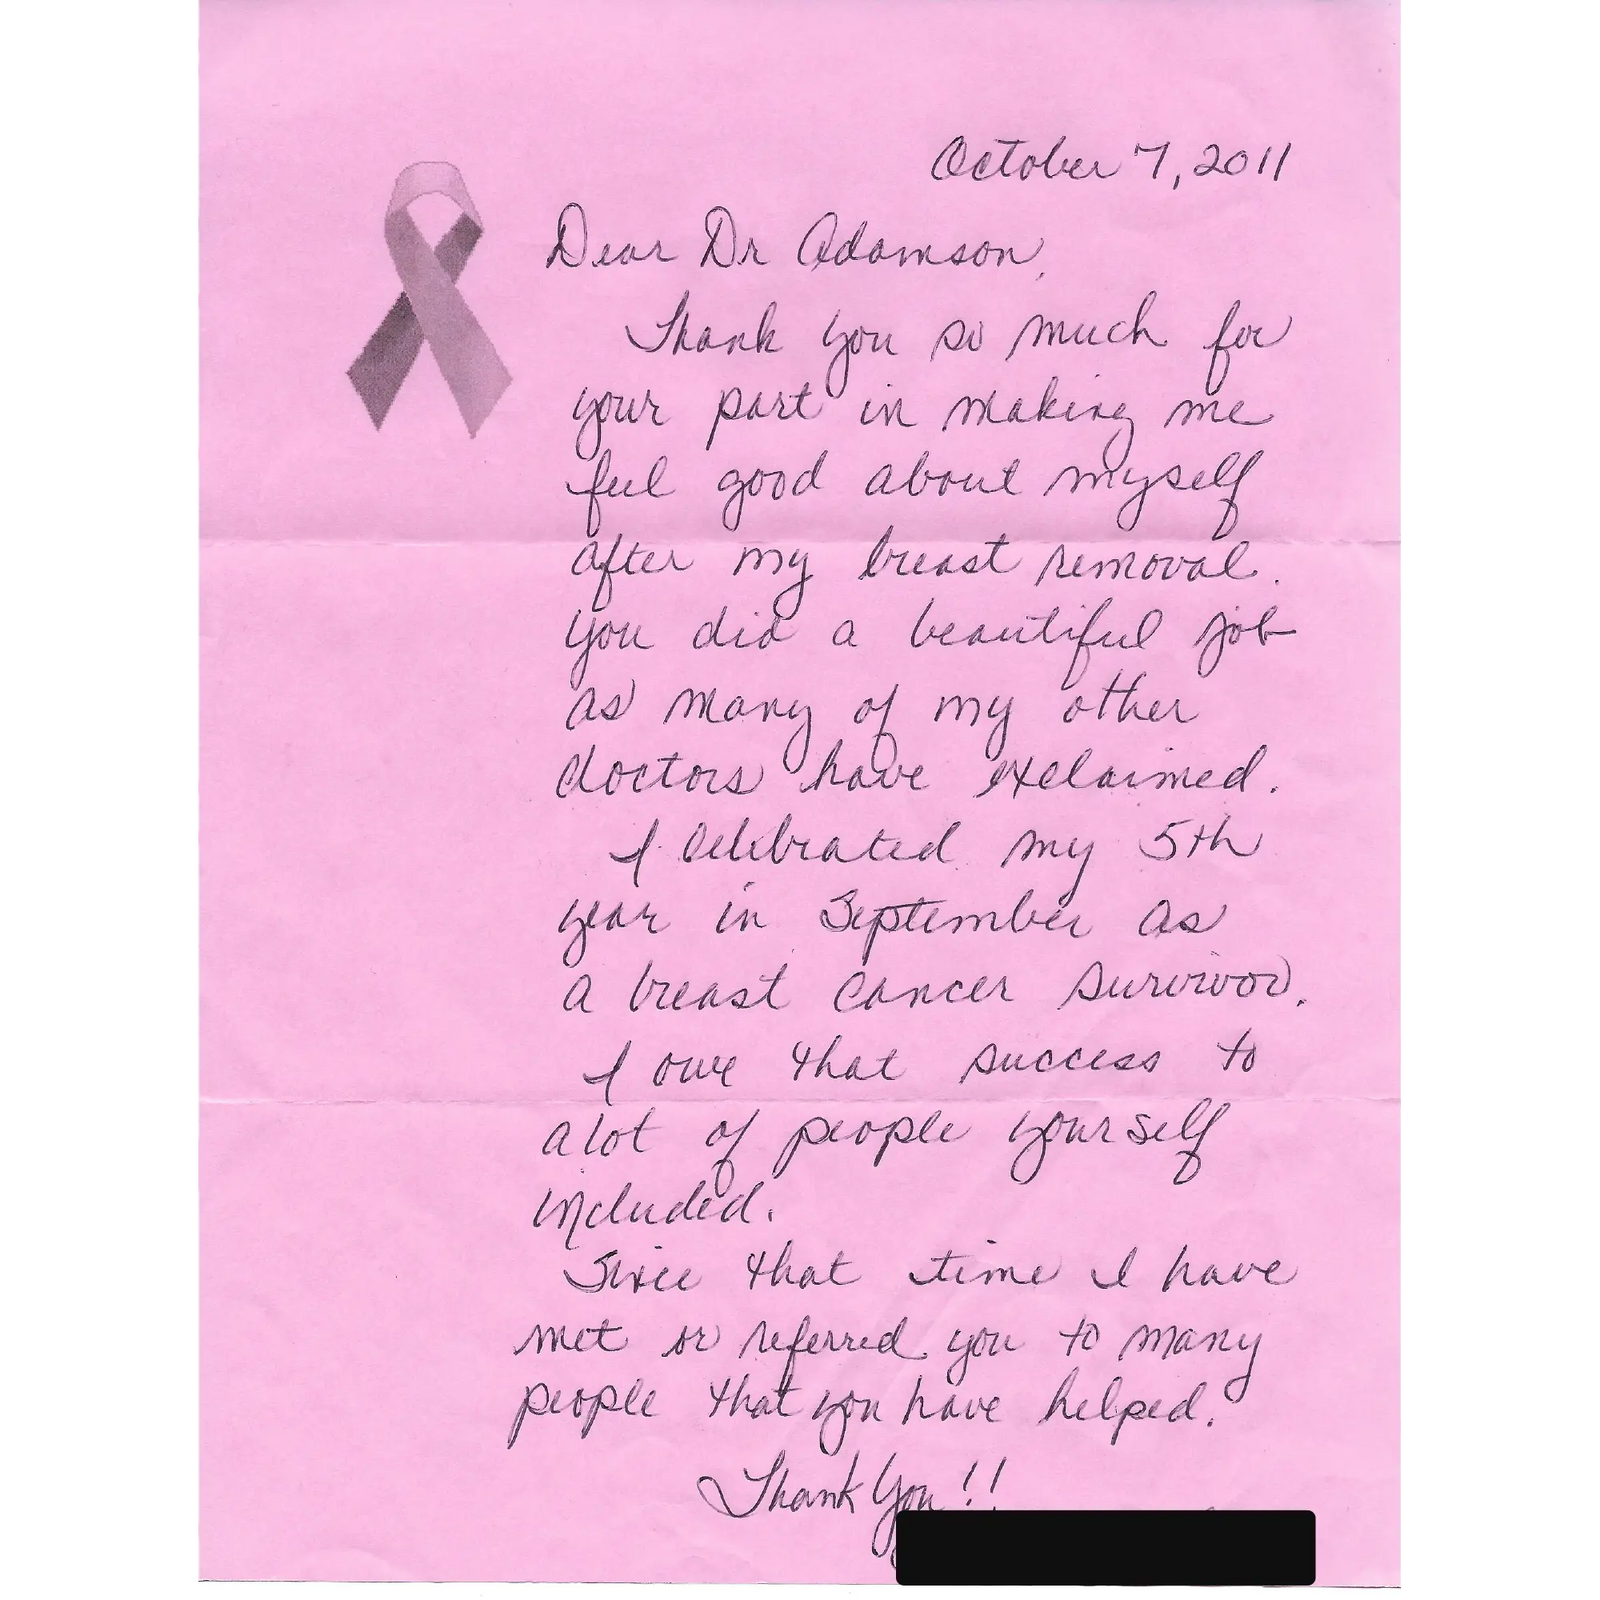 October 7, 2011
Dear Dr Adamson,
Thank you so much for
your part in making me
feel good about myself
after my breast removal.
You did a beautiful job
as many of my other
doctors have exclaimed.
I celebrated my 5th
year in September as
a breast cancer survivor.
I owe that success to
alot of people yourself
included.
Since that time I have
met or referred you to many
people that you have helped.
Thank You!!